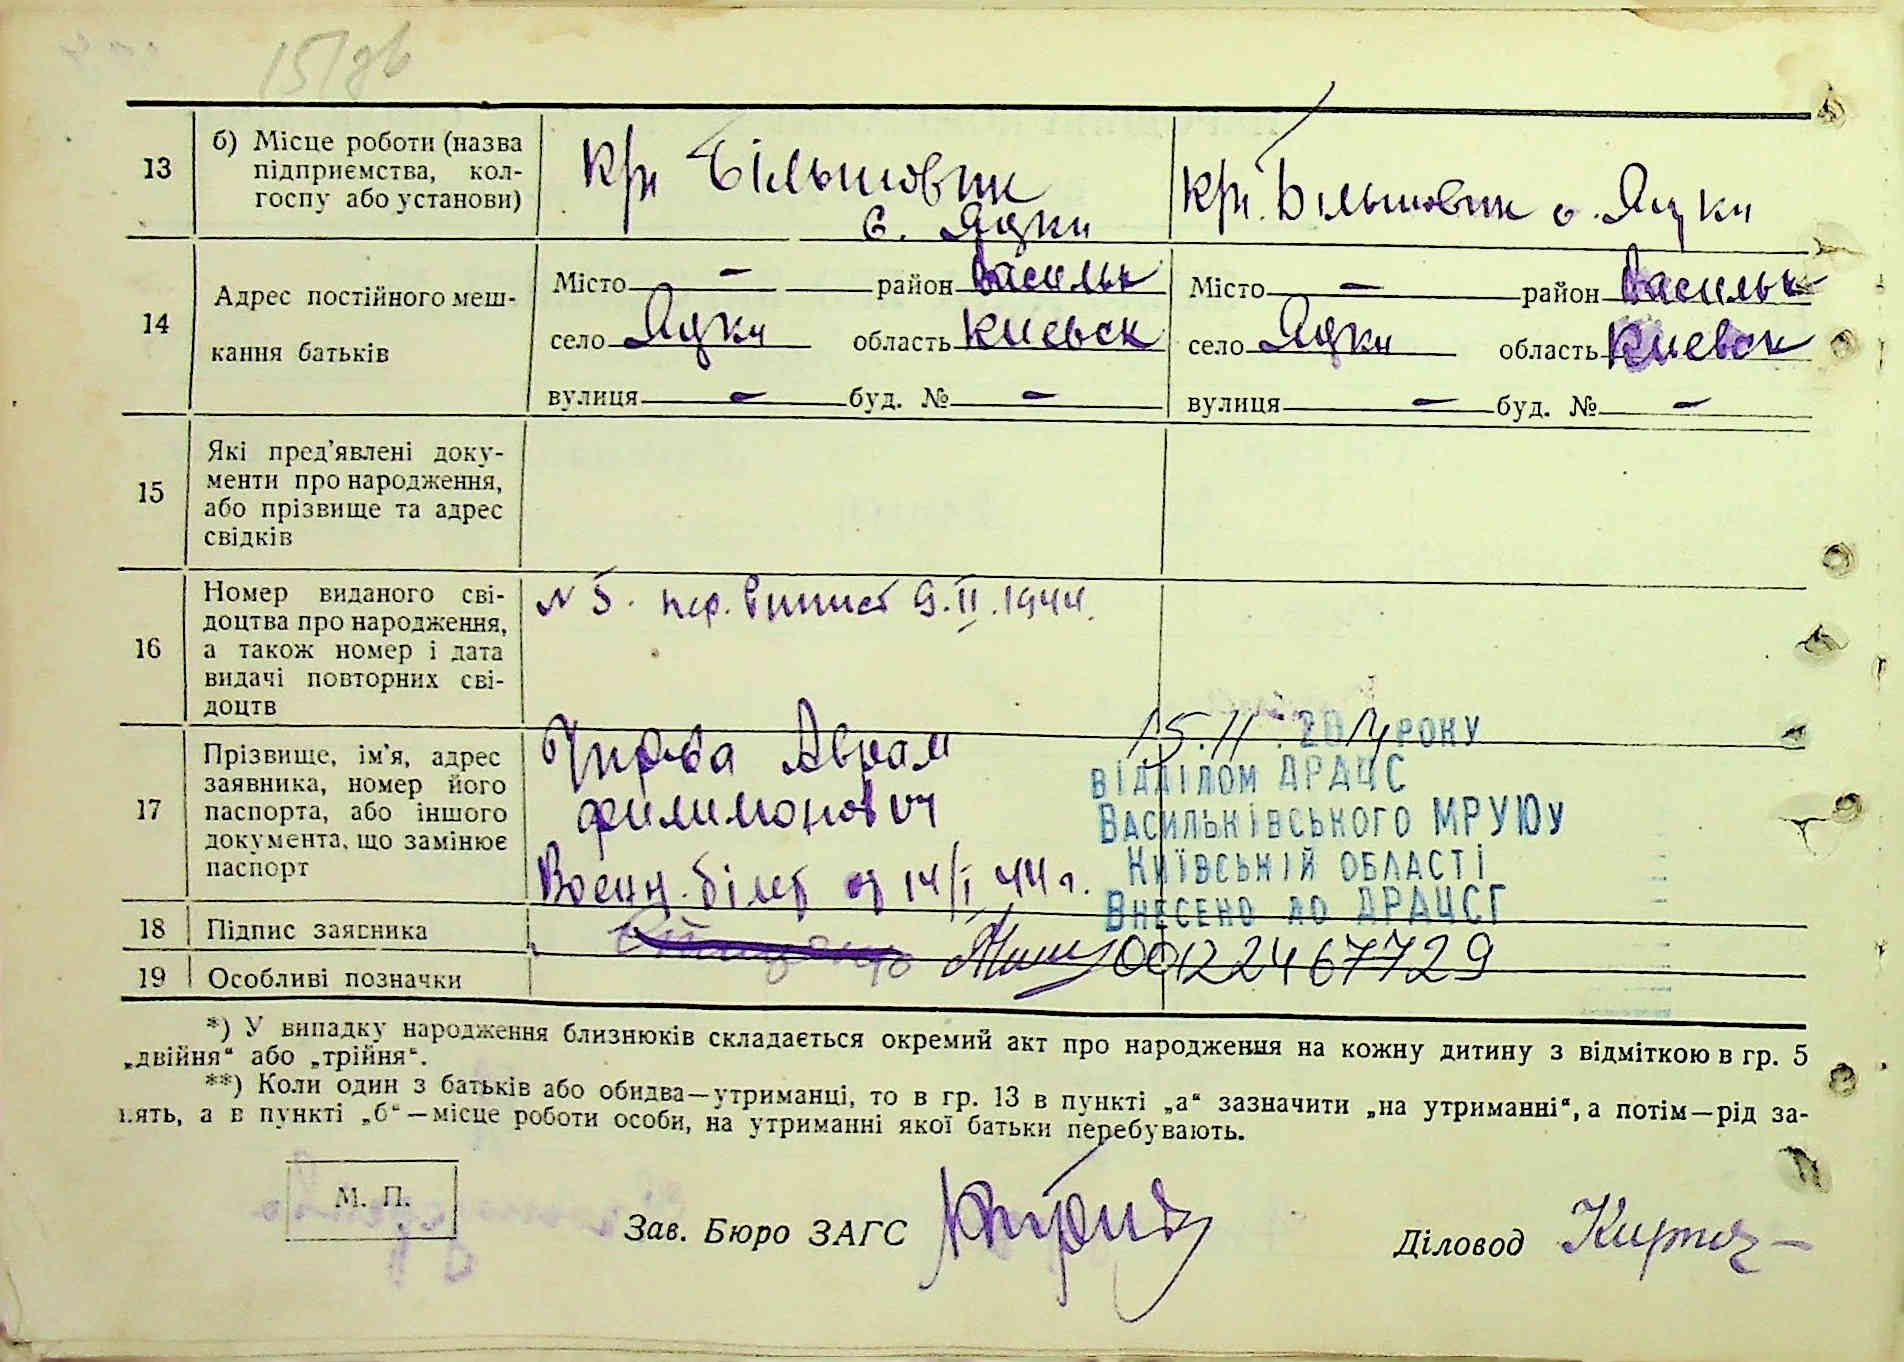 13
б) Місце роботи (назва
підприємства, кол-
госпу або установи)
Більшовик
с. Яцки
Більшовик с. Яцки
14
Адрес постійного меш-
кання батьків
Місто — район Васильк
село Яцки область Киевск
вулиця — буд. № —
Місто — район Васильк
село Яцки область Киевск
вулиця — буд. № —
15
Які пред'явлені доку-
менти про народження,
або прізвище та адрес
свідків
16
Номер виданого сві-
доцтва про народження,
а також номер і дата
видачі повторних сві-
доцтв
N 5. 9.II.1944.
17
Прізвище, ім'я, адрес
заявника, номер його
паспорта, або іншого
документа, що замінює
паспорт
Аврам
Филимонович
Воєнн. білет от 14/I 44 г.
15.11.2014 РОКУ
ВІДДІЛОМ ДРАЦС
ВАСИЛЬКІВСЬКОГО МРУЮУ
КИЇВСЬКІЙ ОБЛАСТІ
ВНЕСЕНО ДО ДРАЦСГ
18
Підпис заявника
00122467729
19
Особливі позначки
*) У випадку народження близнюків складається окремий акт про народження на кожну дитину з відміткою в гр. 5
„двійня“ або „трійня“.
**) Коли один з батьків або обидва—утриманці, то в гр. 13 в пункті „а“ зазначити „на утриманні“, а потім—рід за-
нять, а в пункті „б“—місце роботи особи, на утриманні якої батьки перебувають.
М. П.
Зав. Бюро ЗАГС
Діловод